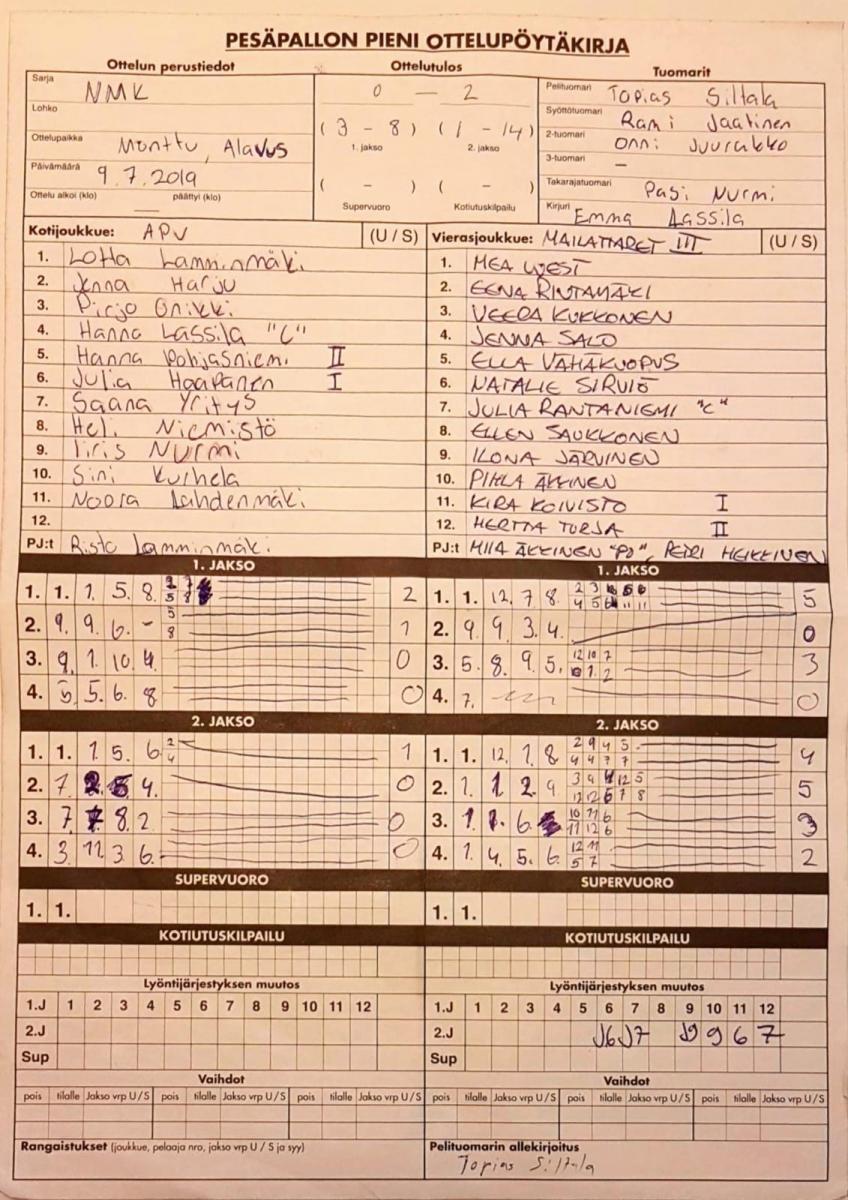 PESÄPALLON PIENI OTTELUPÖYTÄKIRJA
Ottelun perustiedot
Sarja NMK
Lohko
Ottelupaikka Monttu, Alavus
Päivämäärä 9.7.2019
Ottelu alkoi (klo) — päättyi (klo)
Ottelutulos
0 — 2
(3 - 8) (1 - 14)
1. jakso 2. jakso
( - ) ( - )
Supervuoro Kotiutuskilpailu
Tuomarit
Pelituomari Topias Siltala
Syöttötuomari Rami Jaatinen
2-tuomari Onni Juurakko
3-tuomari —
Takarajatuomari Pasi Nurmi
Kirjuri Emma Lassila
Kotijoukkue: APV (U / S)
1. Lotta Lamminmäki
2. Jenna Harju
3. Pirjo Onikki
4. Hanna Lassila "C"
5. Hanna Pohjasniemi II
6. Julia Haapanen I
7. Saana Yritys
8. Heli Niemistö
9. Iiris Nurmi
10. Sini Kurhela
11. Noora Lahdenmäki
12.
PJ:t Risto Lamminmäki
Vierasjoukkue: MAILATTARET III (U / S)
1. MEA WEST
2. EENA RINTAMÄKI
3. VEERA KUKKONEN
4. JENNA SALO
5. ELLA VÄHÄKUOPUS
6. NATALIE SIRVIÖ
7. JULIA RANTANIEMI "C"
8. ELLEN SAUKKONEN
9. ILONA JÄRVINEN
10. PIHLA ÄKKINEN
11. KIRA KOIVISTO I
12. HERTTA TORJA II
PJ:t MIIA ÄKKINEN "PJ", PETRI HEIKKINEN
1. JAKSO
1. 1. 1. 5. 8. 2
2. 9. 9. 6. - 5 8 1
3. 9. 1. 10. 4. 0
4. 5. 5. 6. 8 0
1. JAKSO
1. 1. 12. 7. 8. 5
2. 9 9 3. 4. 0
3. 5. 8. 9. 5. 3
4. 7. 0
2. JAKSO
1. 1. 1 5. 6 2 4 1
2. 7 4. 0
3. 7 8. 2 0
4. 3. 11. 3 6. 0
2. JAKSO
1. 1. 12. 1. 8 2 9 4 5 4 4 7 7 4
2. 1. 1 2. 9 5
3. 1. 1. 6. 10 11 6 11 12 6 3
4. 1. 4. 5. 6. 12 11 5 7 2
SUPERVUORO
1. 1.
SUPERVUORO
1. 1.
KOTIUTUSKILPAILU
KOTIUTUSKILPAILU
Lyöntijärjestyksen muutos
1.J 1 2 3 4 5 6 7 8 9 10 11 12
2.J
Sup
Lyöntijärjestyksen muutos
1.J 1 2 3 4 5 6 7 8 9 10 11 12
2.J J6 J7 J9 9 6 7
Sup
Vaihdot
pois tilalle Jakso vrp U / S pois tilalle Jakso vrp U / S pois tilalle Jakso vrp U / S
Vaihdot
pois tilalle Jakso vrp U / S pois tilalle Jakso vrp U / S pois tilalle Jakso vrp U / S
Rangaistukset (joukkue, pelaaja nro, jakso vrp U / S ja syy)
Pelituomarin allekirjoitus
Topias Siltala